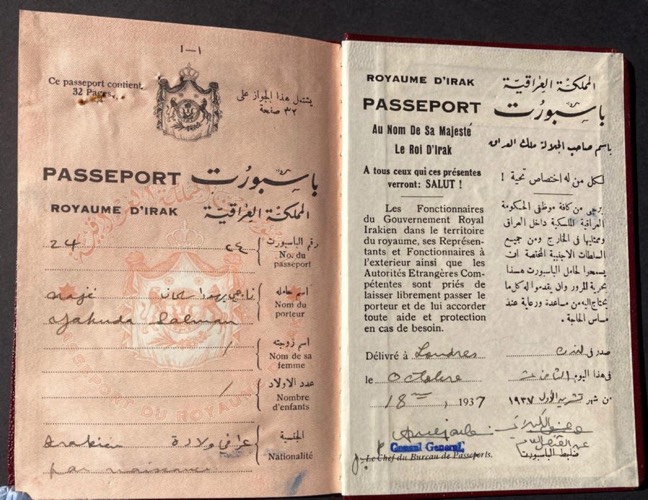 ١-1
Ce passeport contient
32 Pages.
يشتمل هذا الجواز على
٣٢ صحيفة
PASSEPORT پاسپورت
ROYAUME D'IRAK المملكة العراقية
24 ٢٤ رقم الباسپورت
No. du
passeport
Naji ناجي يهودا سلمان اسم حامله
Nom du
Yahuda Salman porteur
/ اسم زوجته
Nom de sa
femme
/ عدد الاولاد
Nombre
d'enfants
Irakien عراقي ولادة الجنسية
Nationalité
par naissance
ROYAUME D'IRAK المملكة العراقية
PASSEPORT پاسپورت
Au Nom De Sa Majesté
Le Roi D'Irak
باسم صاحب الجلالة ملك العراق
A tous ceux qui ces présentes
verront: SALUT !
لكل من له اختصاص تحية !
Les Fonctionnaires
du Gouvernement Royal
Irakien dans le territoire
du royaume, ses Représen-
tants et Fonctionnaires à
l'exterieur ainsi que les
Autorités Etrangères Com-
pétentes sont priés de
laisser librement passer le
porteur et de lui accorder
toute aide et protection
en cas de besoin.
يرجى من كافة موظفي الحكومة
العراقية الملكية داخل العراق
وممثليها في الخارج ومن جميع
السلطات الاجنبية المختصة ان
يسمحوا لحامل الباسپورت هذا
بحرية المرور وان يقدموا له كل ما
يحتاج اليه من مساعدة ورعاية عند
مساس الحاجة.
Délivré à Londres صدر في لندن
le Octobre في هذا اليوم الثامن عشر
18me 1937 من شهر تشرين الاول ١٩٣٧
القنصل العام
Consul General
Le Chef du Bureau de Passeports. ضابط الباسپورت